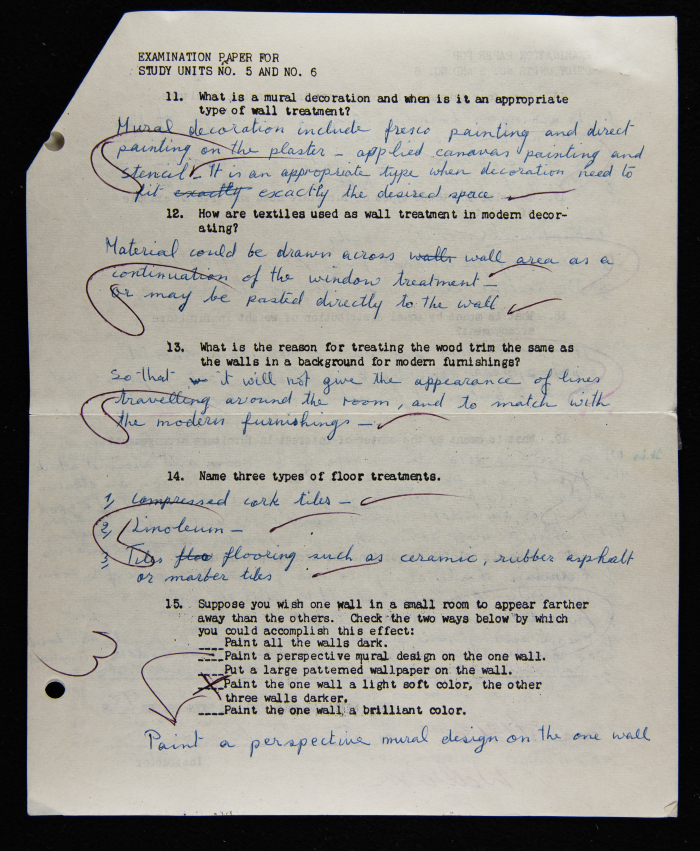 EXAMINATION PAPER FOR
STUDY UNITS NO. 5 AND NO. 6
11. What is a mural decoration and when is it an appropriate
type of wall treatment?
Mural decoration include fresco painting and direct
painting on the plaster - applied canavas painting and
stencil - It is an appropriate type when decoration need to
fit exactly exactly the desired space
12. How are textiles used as wall treatment in modern decor-
ating?
Material could be drawn across walls wall area as a
continuation of the window treatment -
or may be pasted directly to the wall
13. What is the reason for treating the wood trim the same as
the walls in a background for modern furnishings?
So that it will not give the appearance of lines
travelling around the room, and to match with
the modern furnishings -
14. Name three types of floor treatments.
1, Compressed cork tiles -
2, Linoleum -
3, Tiles floo flooring such as ceramic, rubber asphalt
or marber tiles
15. Suppose you wish one wall in a small room to appear farther
away than the others. Check the two ways below by which
you could accomplish this effect:
____Paint all the walls dark.
____Paint a perspective mural design on the one wall.
____Put a large patterned wallpaper on the wall.
X Paint the one wall a light soft color, the other
three walls darker.
____Paint the one wall a brilliant color.
3
Paint a perspective mural design on the one wall